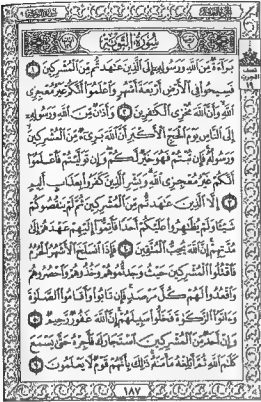 سُورَةُ التَّوْبَةِ
بَرَاءَةٌ مِّنَ اللَّهِ وَرَسُولِهِ إِلَى الَّذِينَ عَاهَدتُّم مِّنَ الْمُشْرِكِينَ ١
فَسِيحُوا فِي الْأَرْضِ أَرْبَعَةَ أَشْهُرٍ وَاعْلَمُوا أَنَّكُمْ غَيْرُ مُعْجِزِي
اللَّهِ وَأَنَّ اللَّهَ مُخْزِي الْكَافِرِينَ ٢ وَأَذَانٌ مِّنَ اللَّهِ وَرَسُولِهِ
إِلَى النَّاسِ يَوْمَ الْحَجِّ الْأَكْبَرِ أَنَّ اللَّهَ بَرِيءٌ مِّنَ الْمُشْرِكِينَ
وَرَسُولُهُ فَإِن تُبْتُمْ فَهُوَ خَيْرٌ لَّكُمْ وَإِن تَوَلَّيْتُمْ فَاعْلَمُوا
أَنَّكُمْ غَيْرُ مُعْجِزِي اللَّهِ وَبَشِّرِ الَّذِينَ كَفَرُوا بِعَذَابٍ أَلِيمٍ
٣ إِلَّا الَّذِينَ عَاهَدتُّم مِّنَ الْمُشْرِكِينَ ثُمَّ لَمْ يَنقُصُوكُمْ
شَيْئًا وَلَمْ يُظَاهِرُوا عَلَيْكُمْ أَحَدًا فَأَتِمُّوا إِلَيْهِمْ عَهْدَهُمْ إِلَى
مُدَّتِهِمْ إِنَّ اللَّهَ يُحِبُّ الْمُتَّقِينَ ٤ فَإِذَا انسَلَخَ الْأَشْهُرُ الْحُرُمُ
فَاقْتُلُوا الْمُشْرِكِينَ حَيْثُ وَجَدتُّمُوهُمْ وَخُذُوهُمْ وَاحْصُرُوهُمْ
وَاقْعُدُوا لَهُمْ كُلَّ مَرْصَدٍ فَإِن تَابُوا وَأَقَامُوا الصَّلَاةَ
وَآتَوُا الزَّكَاةَ فَخَلُّوا سَبِيلَهُمْ إِنَّ اللَّهَ غَفُورٌ رَّحِيمٌ ٥
وَإِنْ أَحَدٌ مِّنَ الْمُشْرِكِينَ اسْتَجَارَكَ فَأَجِرْهُ حَتَّى يَسْمَعَ
كَلَامَ اللَّهِ ثُمَّ أَبْلِغْهُ مَأْمَنَهُ ذَلِكَ بِأَنَّهُمْ قَوْمٌ لَّا يَعْلَمُونَ ٦
١٨٧